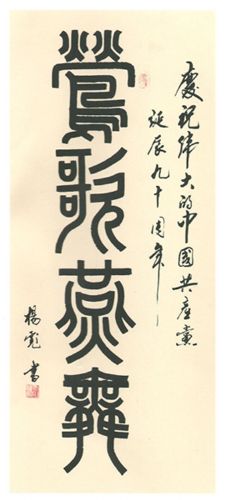 慶祝偉大的中國共產黨
誕辰九十周年
鶯歌燕舞
楊彪書